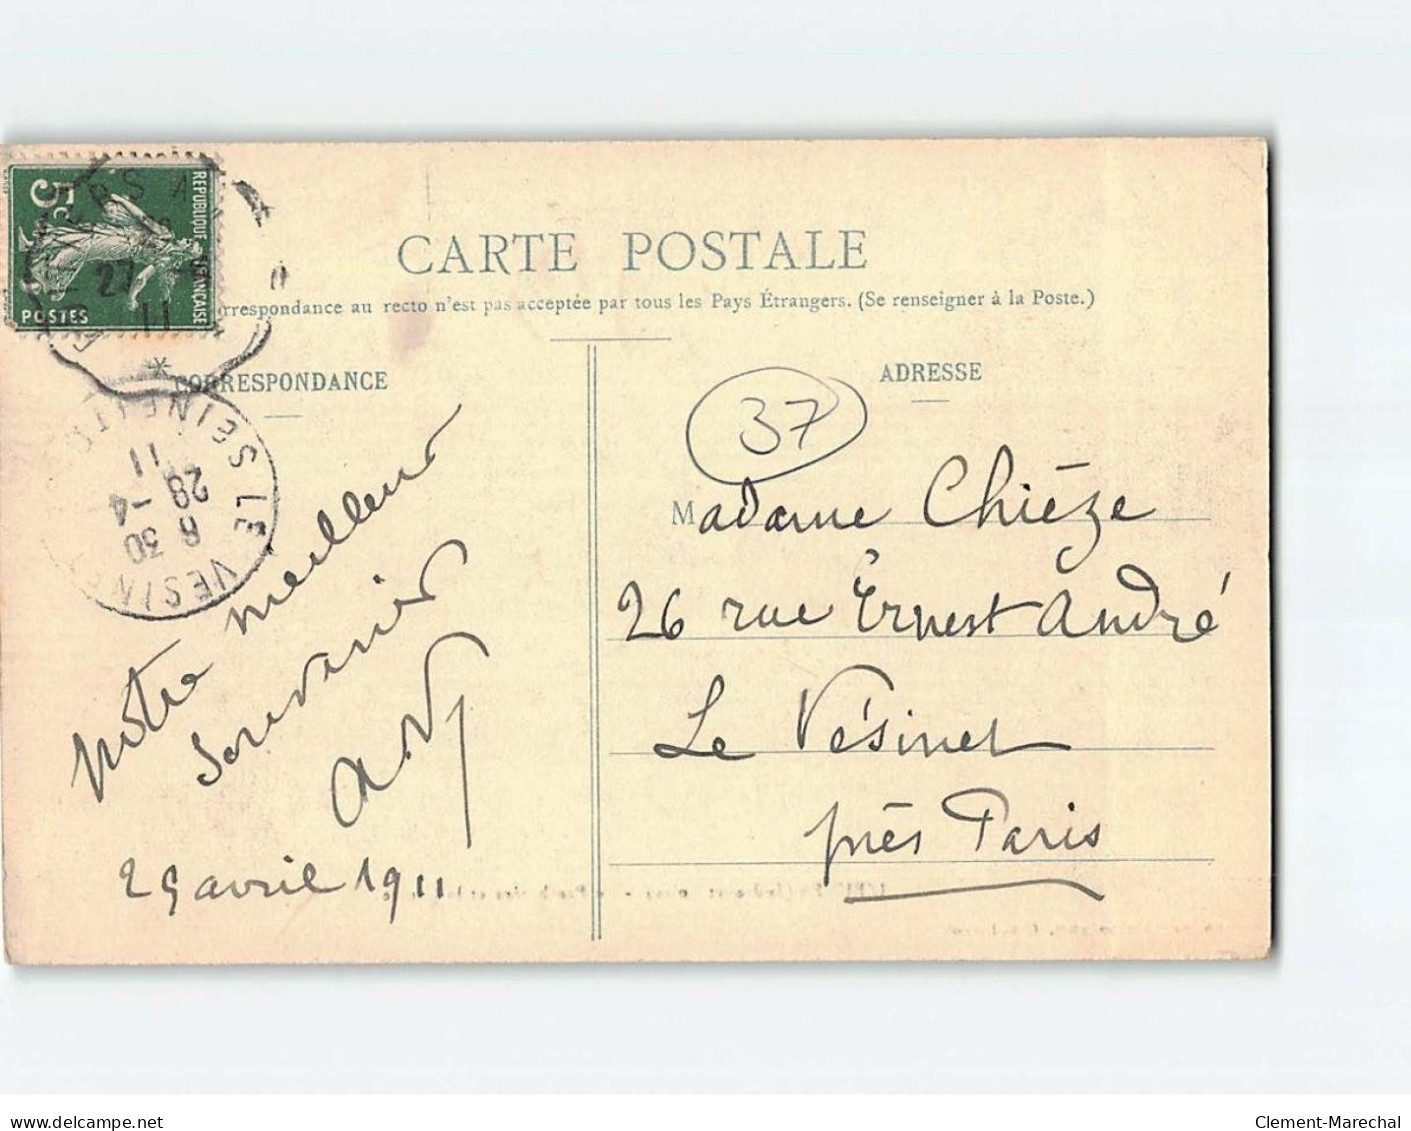 5c
REPUBLIQUE FRANÇAISE
POSTES
27
11
CARTE POSTALE
rrespondance au recto n'est pas acceptée par tous les Pays Étrangers. (Se renseigner à la Poste.)
CORRESPONDANCE
LE VESINET S
8 30
28 -4
11
Notre meilleur
Souvenir
29 avril 1911
ADRESSE
37
Madame Chièze
26 rue Ernest André
Le Vésinet
près Paris
www.delcampe.net
Clement-Marechal